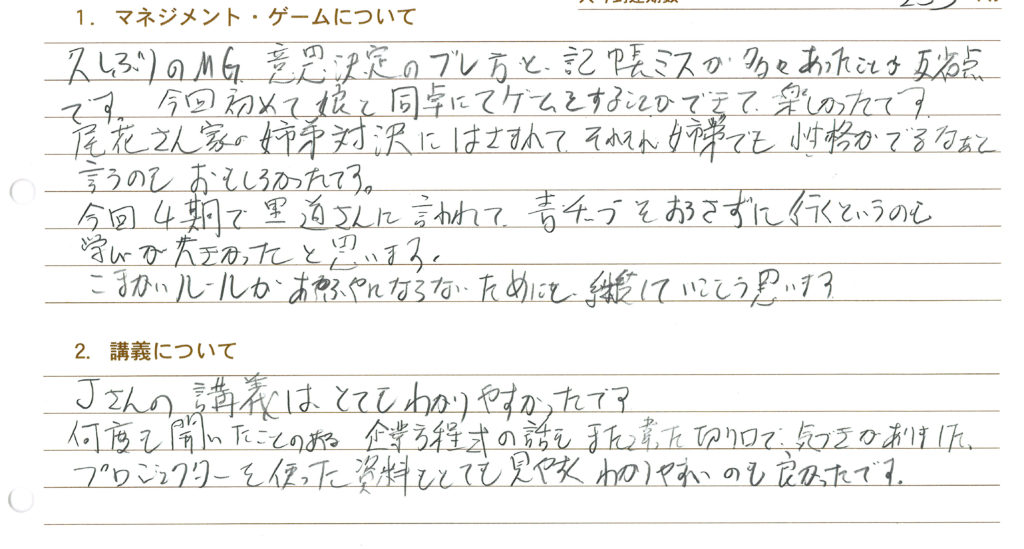 1. マネジメント・ゲームについて
久しぶりのMG. 意思決定のブレ方と、記帳ミスが多々あったことは反省点
です。今回初めて娘と同卓にてゲームをすることができて、楽しかったです
尾花さん家の姉弟対決にはさまれて、それぞれ姉弟でも性格がでるなぁと
言うのもおもしろかったです。
今回4期で里道さんに言われて、青チップをおろさずに行くというのも
学びが大きかったと思います。
こまかいルールがあやふやにならないためにも、継続していこう思います
2. 講義について
Jさんの講義は、とてもわかりやすかったです
何度も聞いたことのある 企業方程式の話も また違った切り口で、気づきがありました。
プロジェクターを使った資料もとても見やすく わかりやすいのも良かったです。